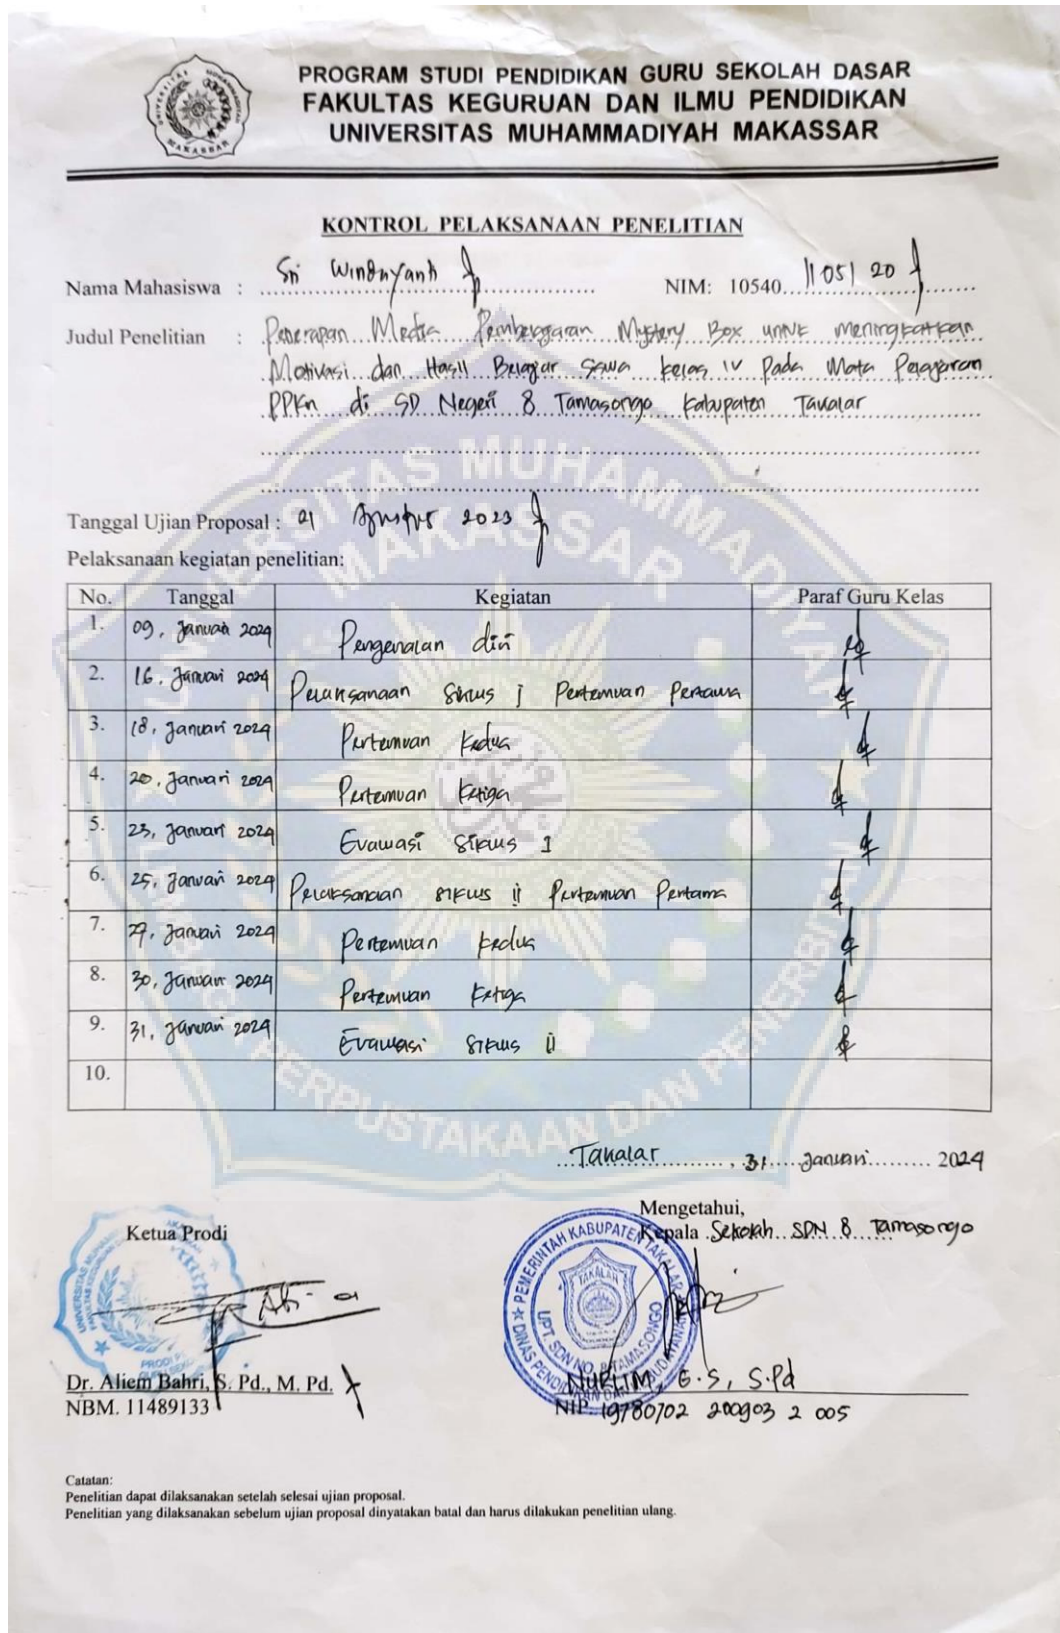 PROGRAM STUDI PENDIDIKAN GURU SEKOLAH DASAR
FAKULTAS KEGURUAN DAN ILMU PENDIDIKAN
UNIVERSITAS MUHAMMADIYAH MAKASSAR
KONTROL PELAKSANAAN PENELITIAN
Nama Mahasiswa : Sri NIM: 10540 1105120
Judul Penelitian : Penerapan Media Pembelajaran Mystery Box untuk meningkatkan
Motivasi dan Hasil Belajar Siswa kelas IV Pada Mata Pelajaran
PPKn di SD Negeri 8 Tamasongo Kabupaten Takalar
Tanggal Ujian Proposal : 21 Agustus 2023
Pelaksanaan kegiatan penelitian:
No. Tanggal Kegiatan Paraf Guru Kelas
1. 09, Januari 2024 Pengenalan diri
2. 16, Januari 2024 Pelaksanaan Siklus I Pertemuan Pertama
3. 18, Januari 2024 Pertemuan Kedua
4. 20, Januari 2024 Pertemuan Ketiga
5. 23, Januari 2024 Evaluasi Siklus 1
6. 25, Januari 2024 Pelaksanaan siklus ii Pertemuan Pertama
7. 27, Januari 2024 Pertemuan Kedua
8. 30, Januari 2024 Pertemuan Ketiga
9. 31, Januari 2024 Evaluasi Siklus ii
10.
Takalar, 31 Januari 2024
Mengetahui,
Ketua Prodi Kepala Sekolah SDN 8 Tamasongo
Dr. Aliem Bahri, S. Pd., M. Pd. NURLIM, E.S, S.Pd
NBM. 11489133 NIP. 19780702 200903 2 005
Catatan:
Penelitian dapat dilaksanakan setelah selesai ujian proposal.
Penelitian yang dilaksanakan sebelum ujian proposal dinyatakan batal dan harus dilakukan penelitian ulang.
UNIVERSITAS MUHAMMADIYAH
MAKASSAR
PERPUSTAKAAN DAN PENERBITAN
PEMERINTAH KABUPATEN TAKALAR
TAKALAR